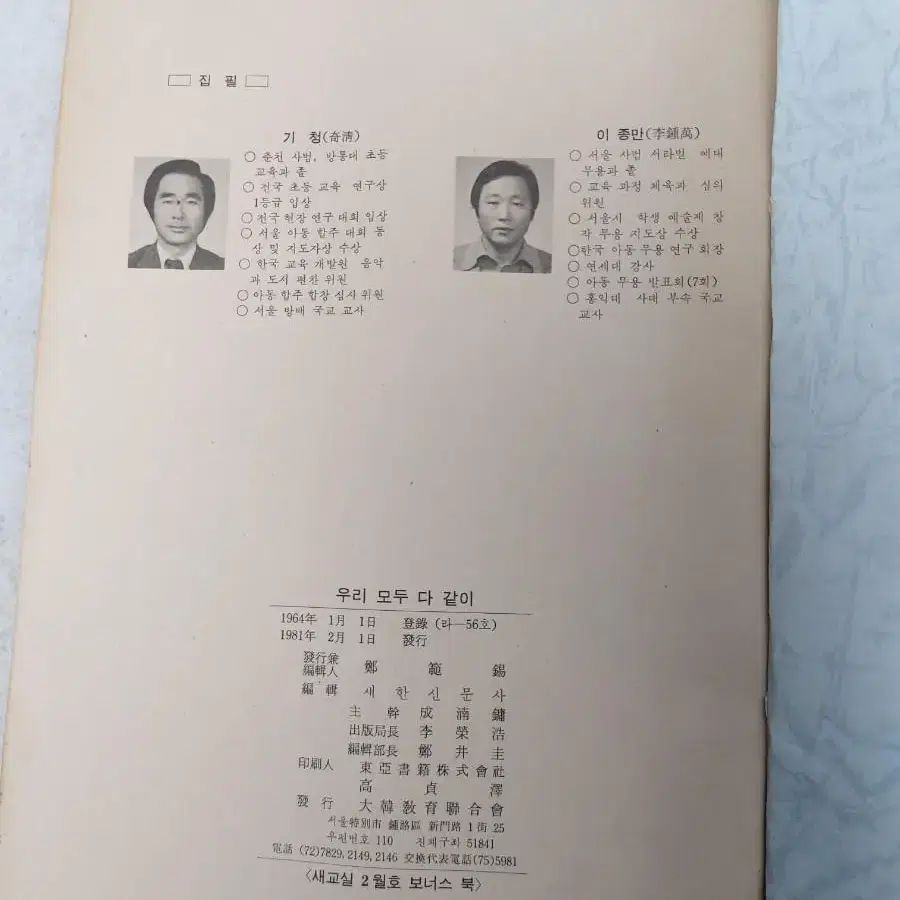 집 필
기 청(奇淸)
○ 춘천 사범, 방통대 초등
교육과 졸
○ 전국 초등 교육 연구상
1등급 입상
○ 전국 현장 연구 대회 입상
○ 서울 아동 합주 대회 동
상 및 지도자상 수상
○ 한국 교육 개발원 음악
과 도서 편찬 위원
○ 아동 합주 합창 심사 위원
○ 서울 방배 국교 교사
이 종만(李鍾萬)
○ 서울 사범 서라벌 예대
무용과 졸
○ 교육 과정 체육과 심의
위원
○ 서울시 학생 예술제 창
작 무용 지도상 수상
○한국 아동 무용 연구 회장
○ 연세대 강사
○ 아동 무용 발표회(7회)
○ 홍익대 사대 부속 국교
교사
우리 모두 다 같이
1964年 1月 1日 登錄 (라—56호)
1981年 2月 1日 發行
發行兼
編輯人 鄭範錫
編輯 새한신문사
主幹 成滴鏞
出版局長 李榮浩
編輯部長 鄭井圭
印刷人 東亞書籍株式會社
高貞澤
發行 大韓敎育聯合會
서울特別市 鍾路區 新門路 1街 25
우편번호 110 전체구좌 51841
電話 (72)7829, 2149, 2146 交換代表電話(75)5981
〈새교실 2월호 보너스 북〉